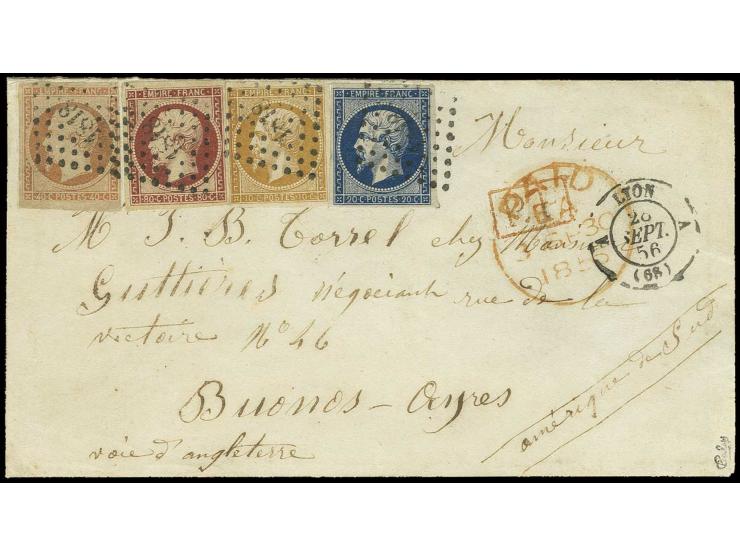 EMPIRE FRANC EMPIRE FRANC EMPIRE FRANC EMPIRE FRANC
40 C·POSTES·40 C· 80 C·POSTES·80 C· 10 C·POSTES·10 C· 20 C·POSTES·20 C·
Monsieur
PAID
1856
LYON
28
SEPT.
56
(68)
M J. B. Torrel chez Monsieur
Guttières négociant rue de la
victoire N° 46
Buenos-Ayres
voie d'angleterre
amérique de Sud